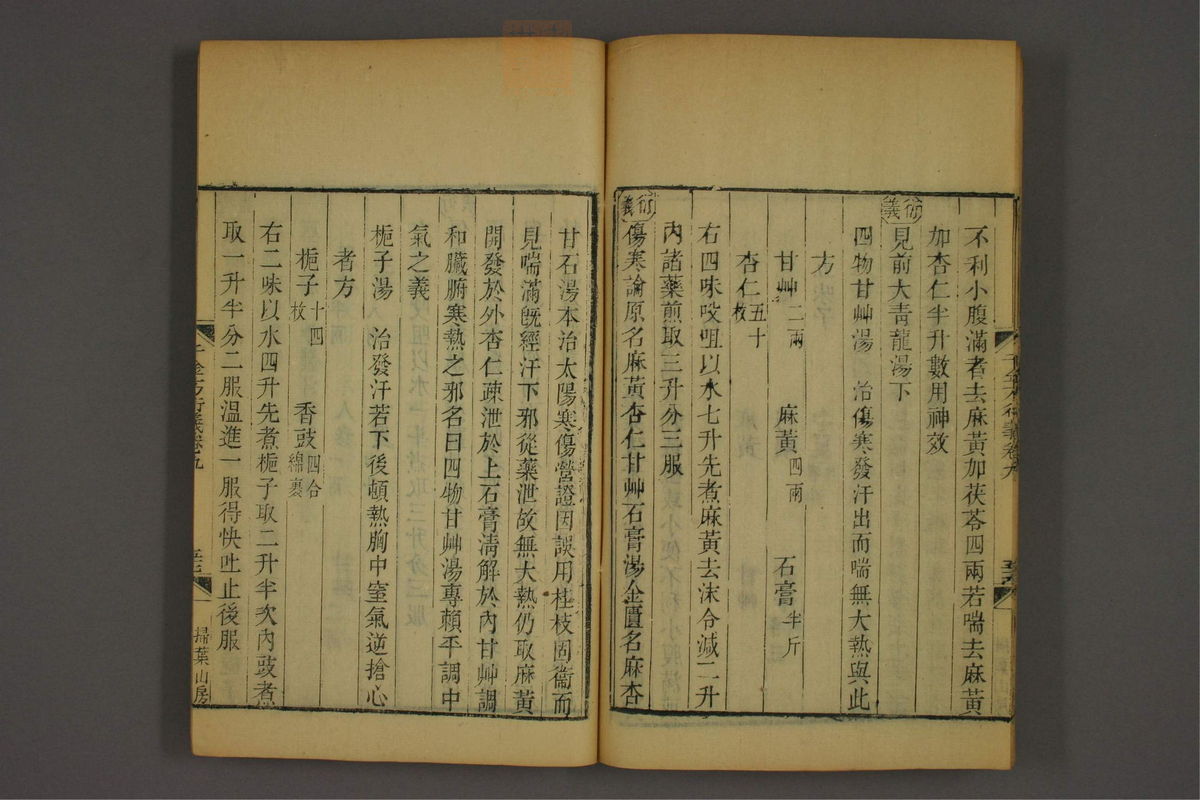 不利小腹滿者去麻黃加茯苓四兩若喘去麻黃
加杏仁半升數用神效
衍義
見前大青龍湯下
四物甘艸湯 治傷寒發汗出而喘無大熱與此
方
甘艸二兩 麻黃四兩 石膏半斤
杏仁五十枚
右四味㕮咀以水七升先煮麻黃去沫令減二升
內諸藥煎取三升分三服
衍義
傷寒論原名麻黃杏仁甘艸石膏湯金匱名麻杏
甘石湯本治太陽寒傷營證因誤用桂枝固衞而
見喘滿既經汗下邪從藥泄故無大熱仍取麻黃
開發於外杏仁疎泄於上石膏清解於內甘艸調
和臟腑寒熱之邪名曰四物甘艸湯專賴平調中
氣之義
梔子湯 治發汗若下後頓熱胸中窒氣逆搶心
者方
梔子十四枚 香豉四合綿裹
右二味以水四升先煮梔子取二升半次內豉煮
取一升半分二服溫進一服得快吐止後服
千金方衍義卷九
掃葉山房